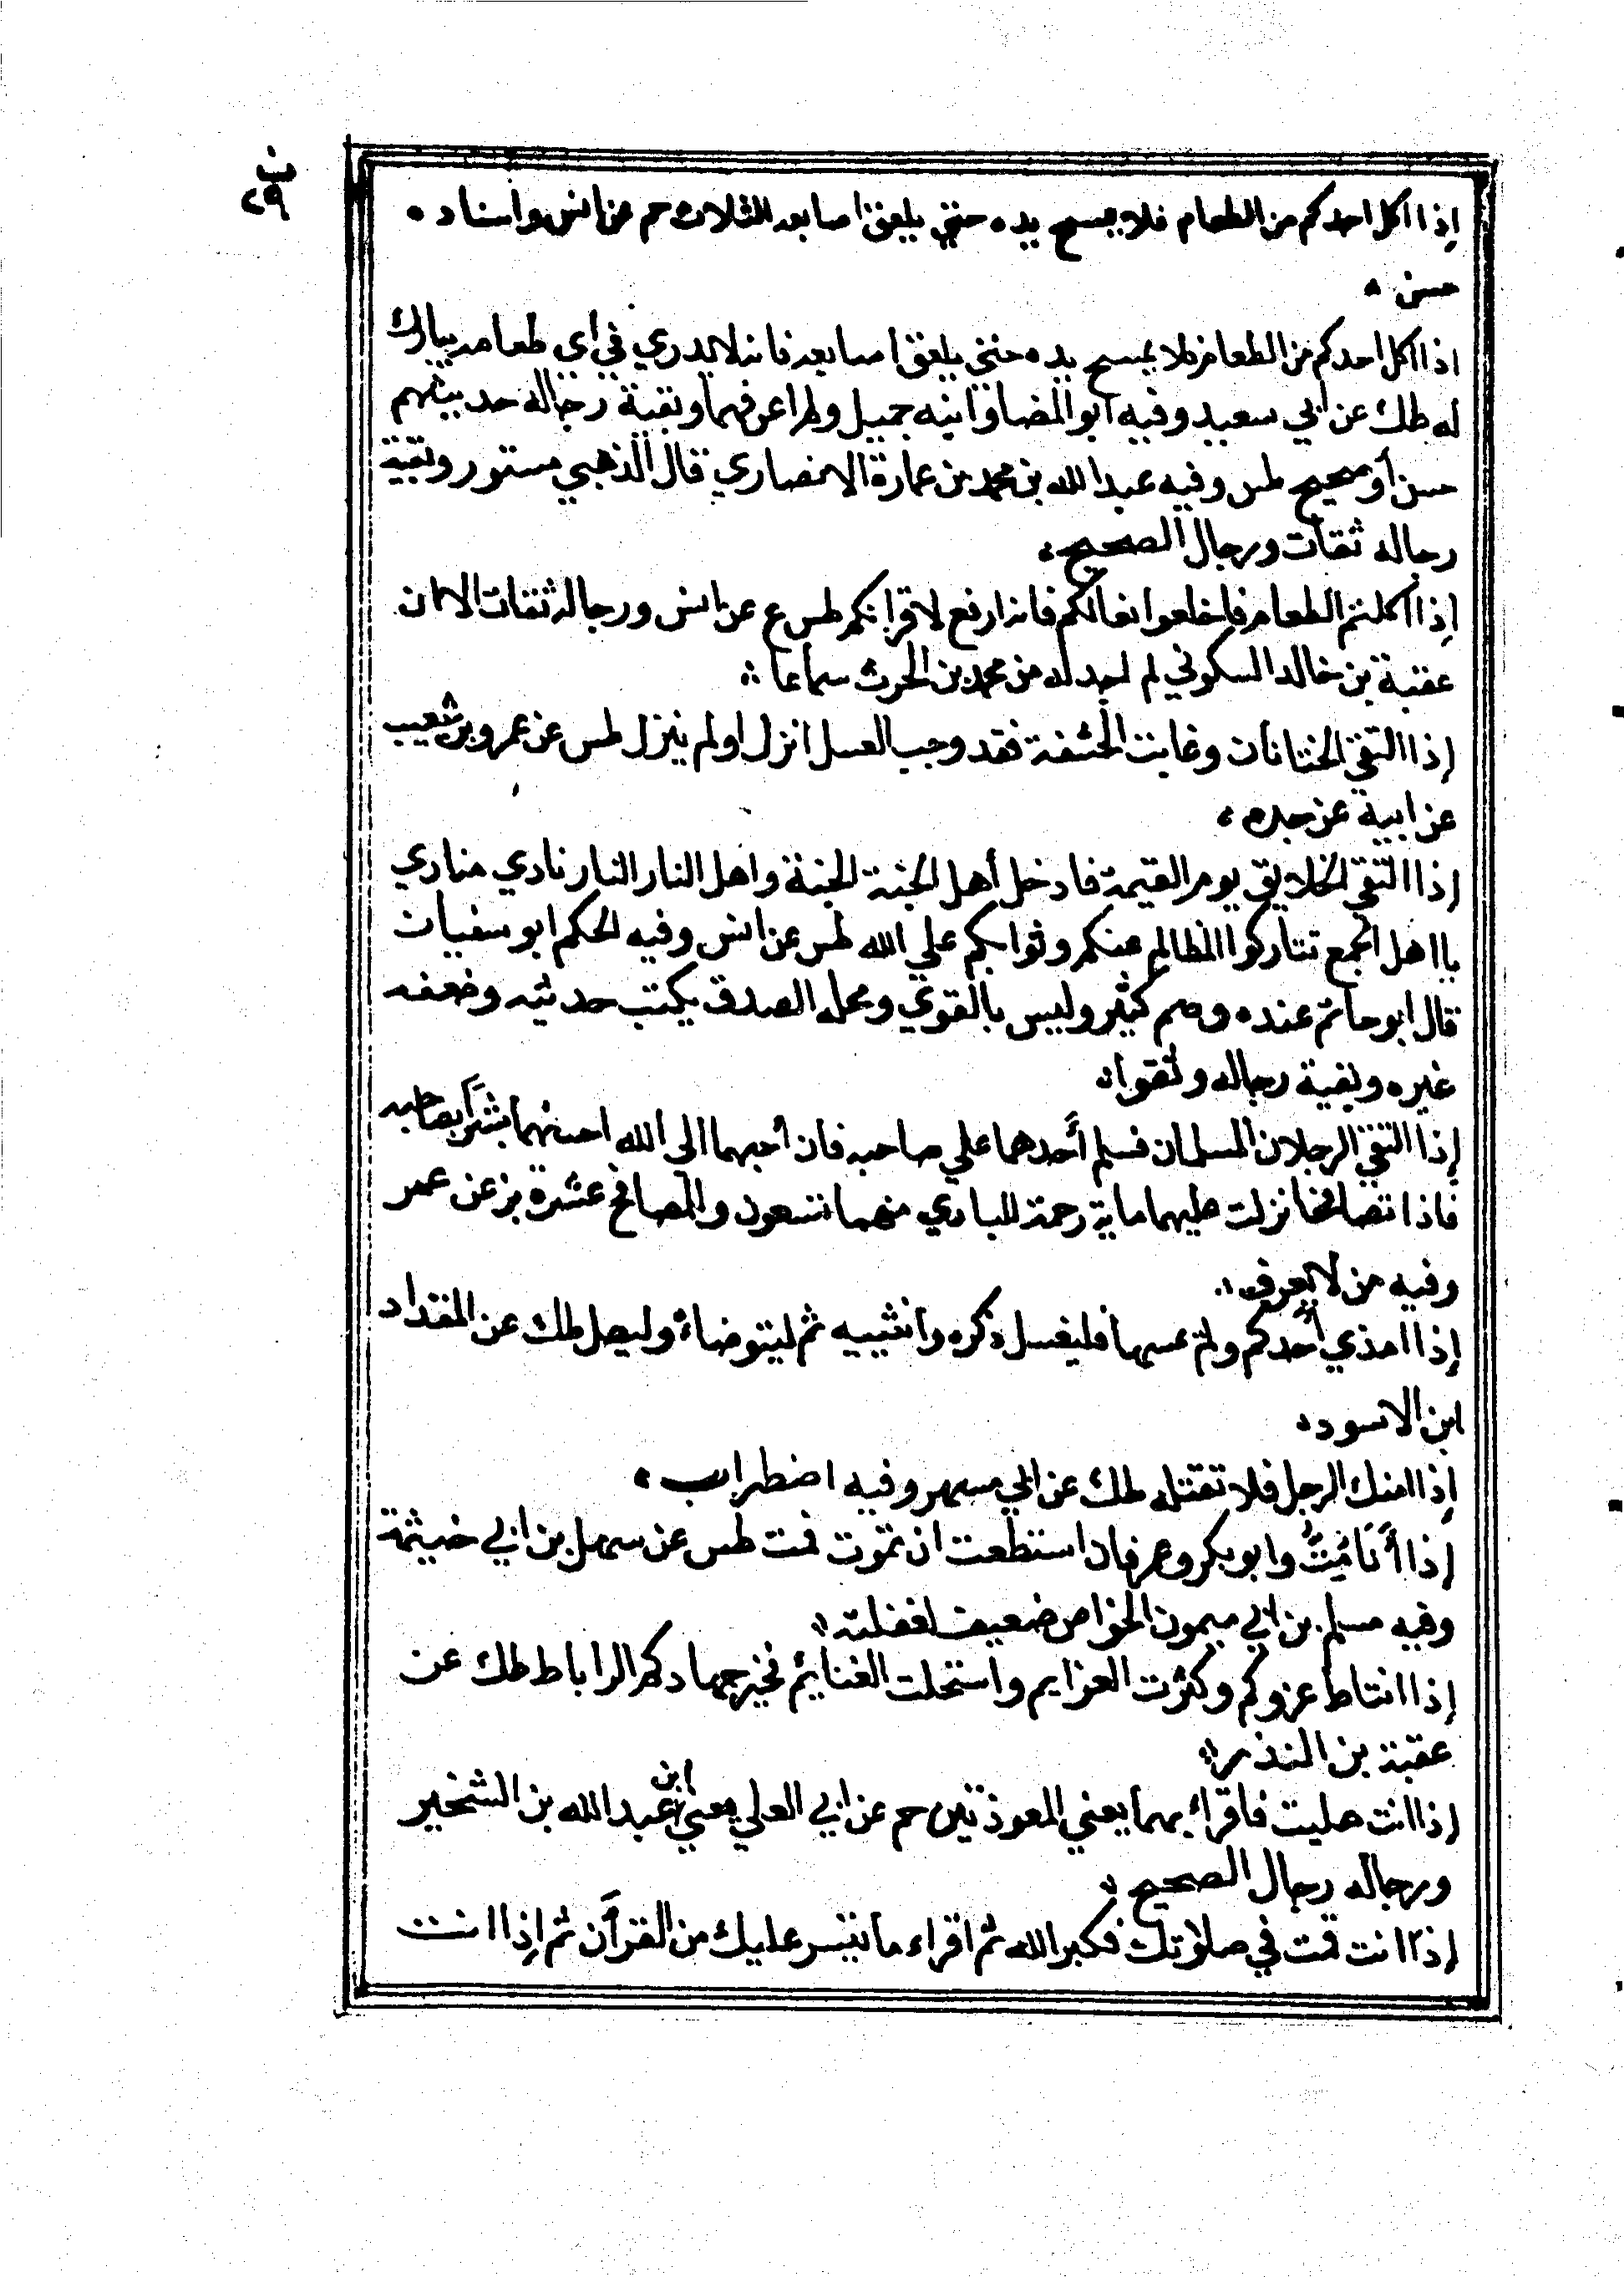 ن
٢٩
إذا اكل احدكم من الطعام فلا يمسح يده حتي يلعق اصابعه الثلاث حم عن انس واسناده
حسن
اذا اكل احدكم من الطعام فلا يمسح يده حتي يلعق اصابعه فانه لا يدري في أي طعامه يبارك
له طك عن ابي سعيد وفيه ابو المضاوابنه جميل ولم اعرفهما وبقية رجاله حديثهم
حسن أو صحيح طس وفيه عبد الله بن محمد بن عمارة الانصاري قال الذهبي مستور وبقية
رجاله ثقات ورجال الصحيح
إذا اكلتم الطعام فاخلعوا نعالكم فانه ارفع لاقرانكم طس ع عن انس ورجاله ثقات الا ان
عقبة بن خالد السكوني لم اجد له من محمد بن الحرث سماعا
إذا التقي الختانان وغابت الحشفة فقد وجب الغسل انزل اولم ينزل طس عن عمرو بن شعيب
عن ابية عن جده
إذا التقي الخلايق يوم القيمة فادخل أهل الجنة الجنة واهل النار النار نادي منادي
يا اهل الجمع تتاركوا المظالم عنكم وثوابكم علي الله طس عن انس وفيه الحكم ابو سفيان
قال ابو حاتم عنده وهم كثير وليس بالقوي ومحله الصدق يكتب حديثه وضعفه
غيره وبقية رجاله وثقوا
إذا التقي الرجلان المسلمان فسلم أحدهما علي صاحبه فان أحبهما الى الله احسنهما بشرا بصاحبه
فاذا تصافحا نزلت عليهما ماية رحمة للبادي منهما تسعون والمصافح عشرة بز عن عمر
وفيه من لا يعرف
إذا امذي أحدكم ولم يمسها فليغسل ذكره وانثييه ثم ليتوضاء وليصل طك عن المقداد
ابن الاسود
إذا امنك الرجل فلا تقتله طك عن ابي مسهر وفيه اضطراب
إذا أنا مُتُّ وابو بكر وعمر فان استطعت ان تموت فمت طس عن سهل بن ابي خيثمة
وفيه مسلم بن ابي ميمون الخواص ضعيف لغفلته
إذا انتاط غزوكم وكثرت العزايم واستحلت الغنايم فخير جهادكم الراباط طك عن
عقبة بن الندر
إذا انت صليت فاقراء بهما يعني المعوذتين حم عن ابي العلي يعني ابن عبد الله بن الشخير
ورجاله رجال الصحيح
إذا انت قمت في صلاتك فكبر الله ثم اقراء ما تيسر عليك من القرأن ثم إذا انت